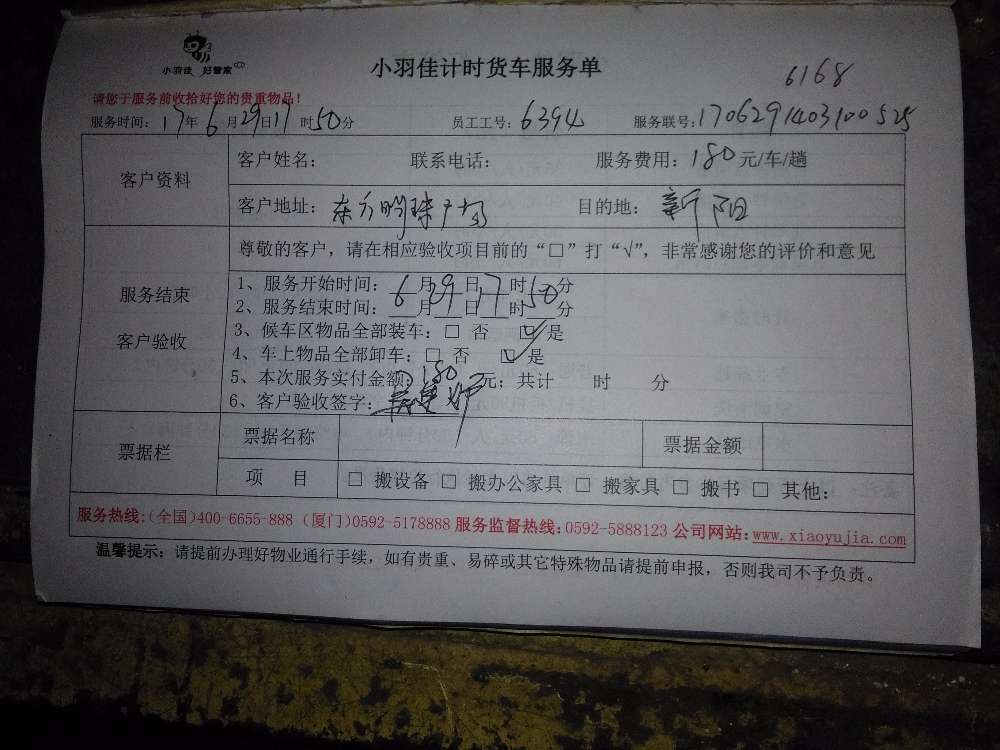 小羽佳 好管家
小羽佳计时货车服务单
6168
请您于服务前收拾好您的贵重物品!
服务时间: 17年6月29日17时50分 员工工号: 6394 服务联号: 1706291403100525
客户资料
客户姓名: 联系电话: 服务费用: 180元/车/趟
客户地址: 东方明珠广场 目的地: 新阳
服务结束
客户验收
尊敬的客户，请在相应验收项目前的“□”打“√”，非常感谢您的评价和意见
1、服务开始时间: 6月29日17时50分
2、服务结束时间: 月 日 时 分
3、候车区物品全部装车: □ 否 ☑ 是
4、车上物品全部卸车: □ 否 ☑ 是
5、本次服务实付金额: 180元; 共计 时 分
6、客户验收签字:
票据栏
票据名称 票据金额
项 目 □ 搬设备 □ 搬办公家具 □ 搬家具 □ 搬书 □ 其他:
服务热线:(全国)400-6655-888 (厦门)0592-5178888 服务监督热线:0592-5888123 公司网站:www.xiaoyujia.com
温馨提示: 请提前办理好物业通行手续，如有贵重、易碎或其它特殊物品请提前申报，否则我司不予负责。